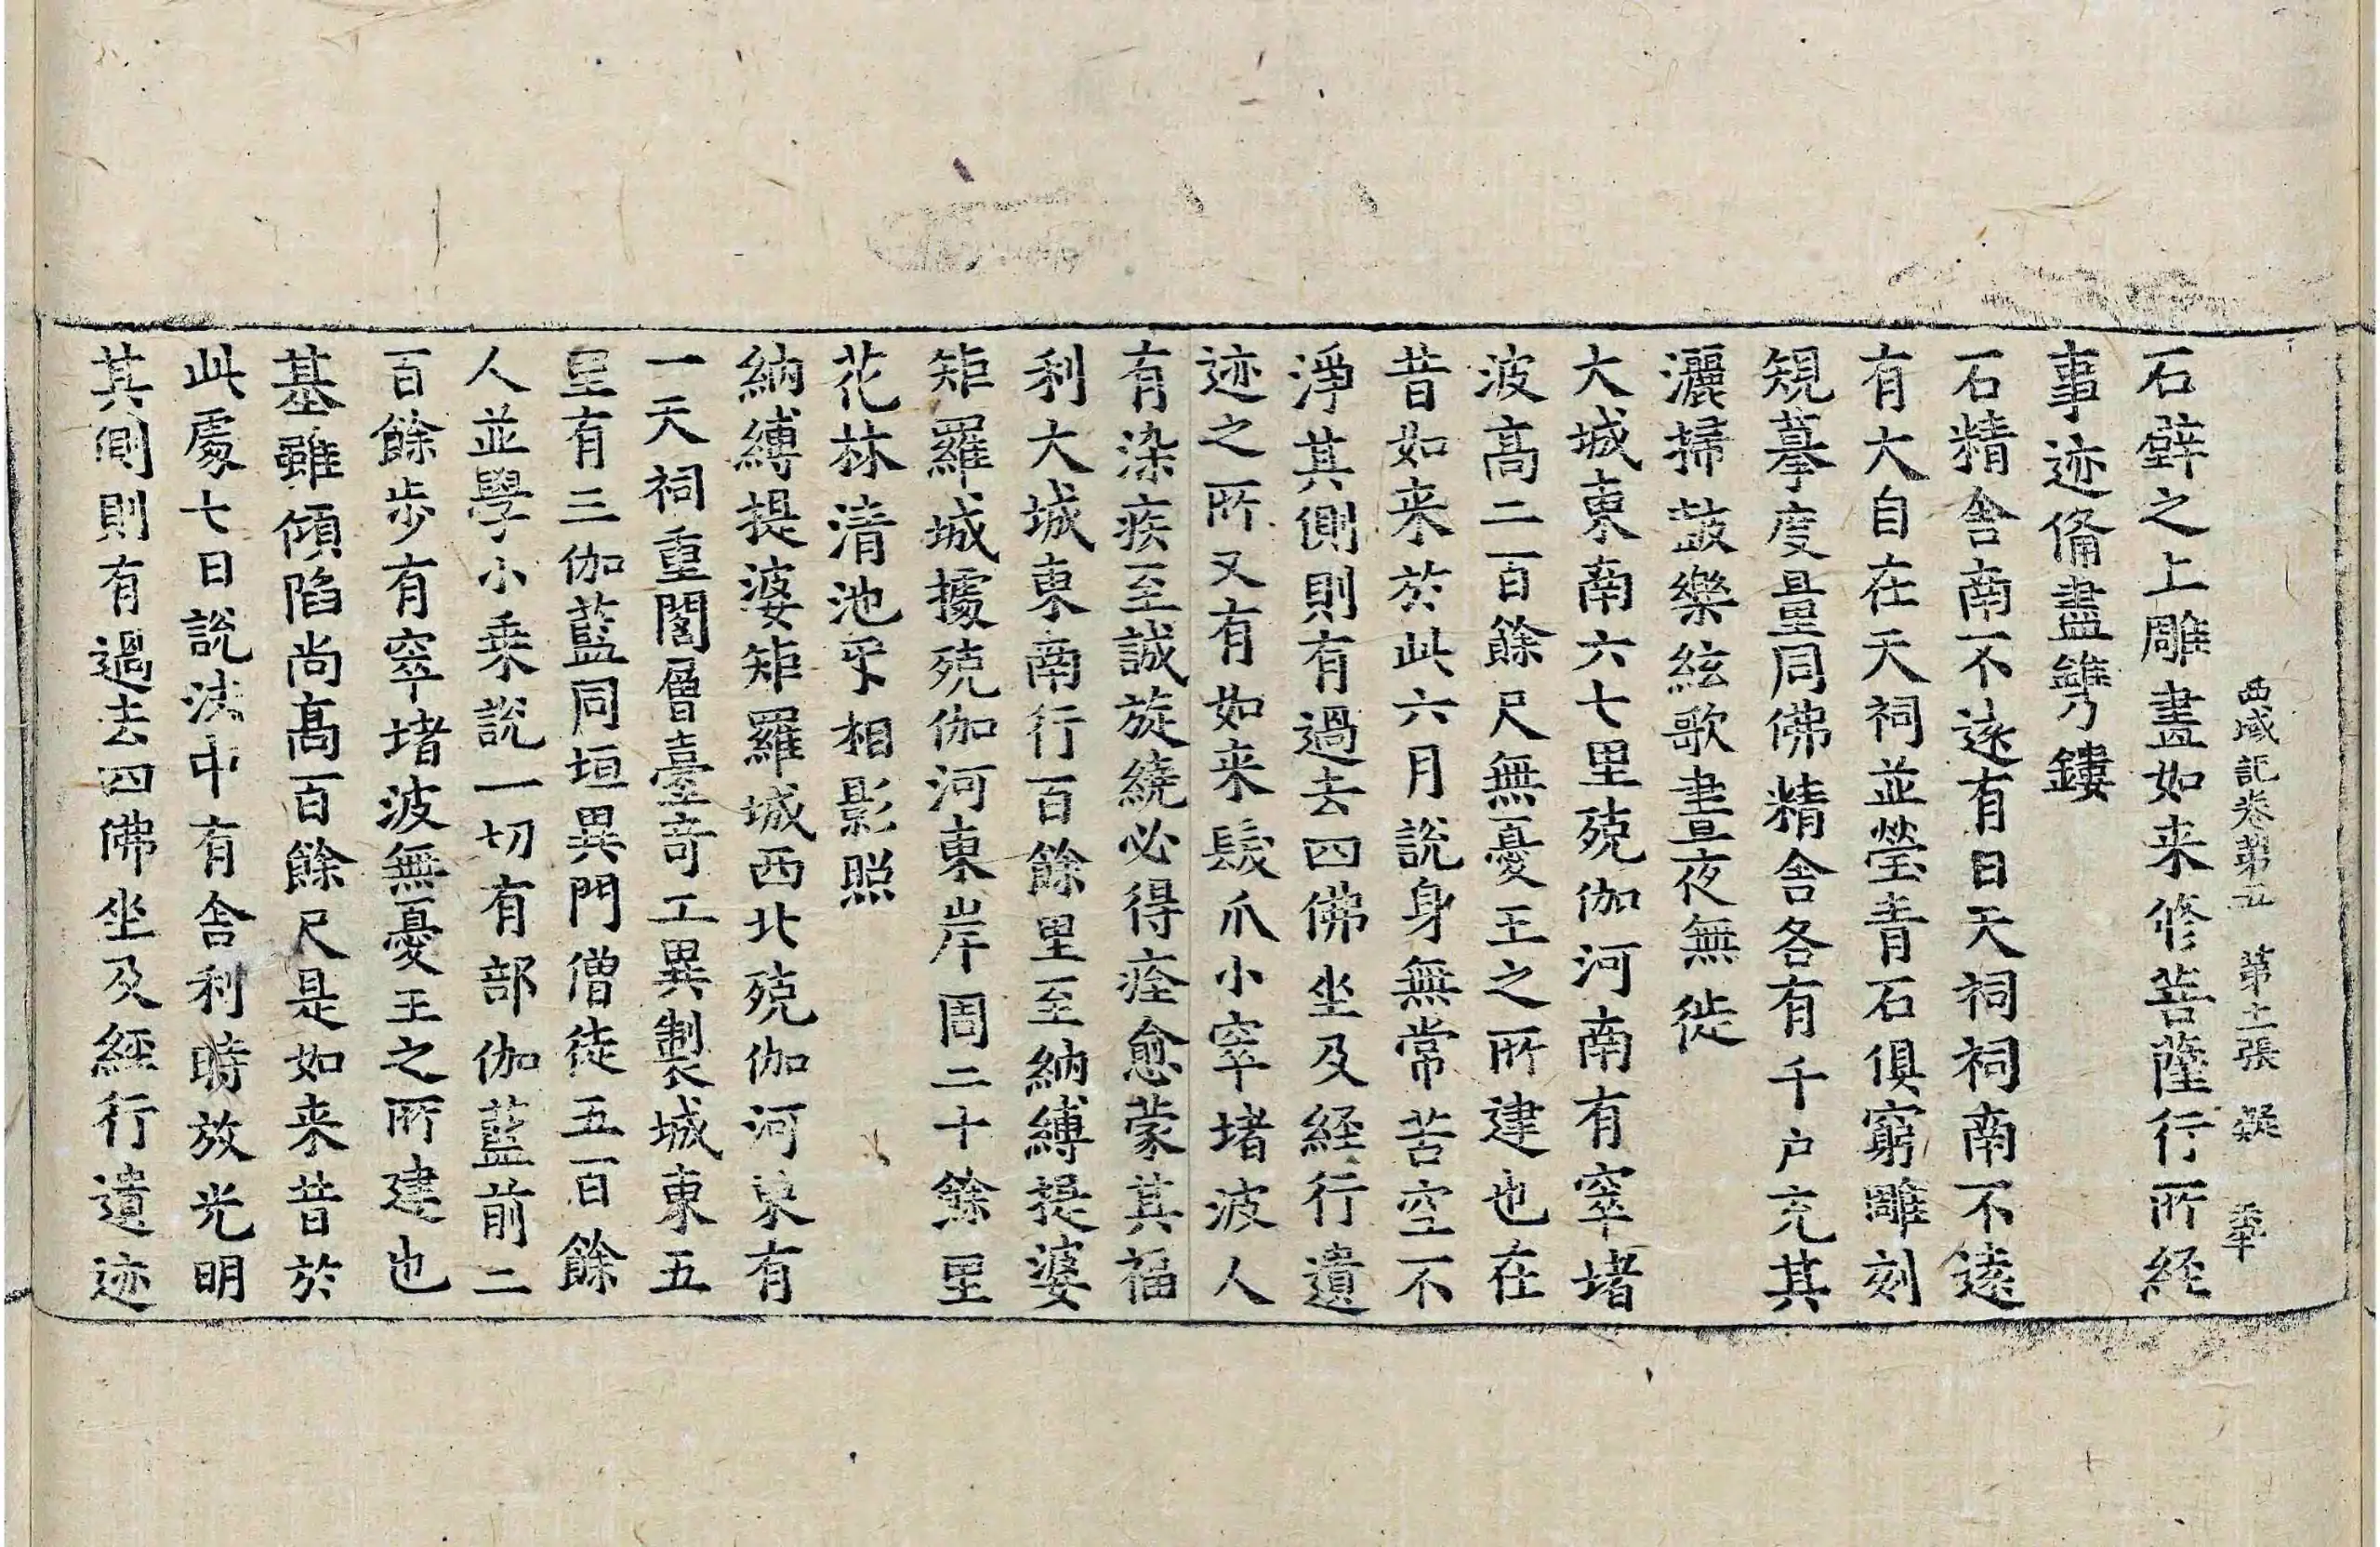 西域記卷第五 第十一張 疑
石壁之上雕畫如来修菩薩行所経
事迹俻盡鐫鏤
石精舎南不逺有日天祠祠南不逺
有大自在天祠並瑩青石俱窮雕刻
䂓摹度量同佛精舎各有千户充其
灑掃鼓樂絃歌晝夜無徙
大城東南六七里殑伽河南有窣堵
波髙二百餘尺無憂王之所建也在
昔如来於此六月說身無常苦空不
淨其側則有過去四佛坐及経行遺
迹之所又有如来髮爪小窣堵波人
有染疾至誠旋繞必得痊愈蒙其福
利大城東南行百餘里至納縛提婆
矩羅城據殑伽河東岸周二十餘里
花林清池㸦相影照
納縛提婆矩羅城西北殑伽河東有
一天祠重閣層臺奇工異製城東五
里有三伽藍同垣異門僧徒五百餘
人並學小乗說一切有部伽藍前二
百餘歩有窣堵波無憂王之所建也
基雖傾陷尚髙百餘尺是如来昔於
此處七日說法中有舎利時放光明
其側則有過去四佛坐及経行遺迹